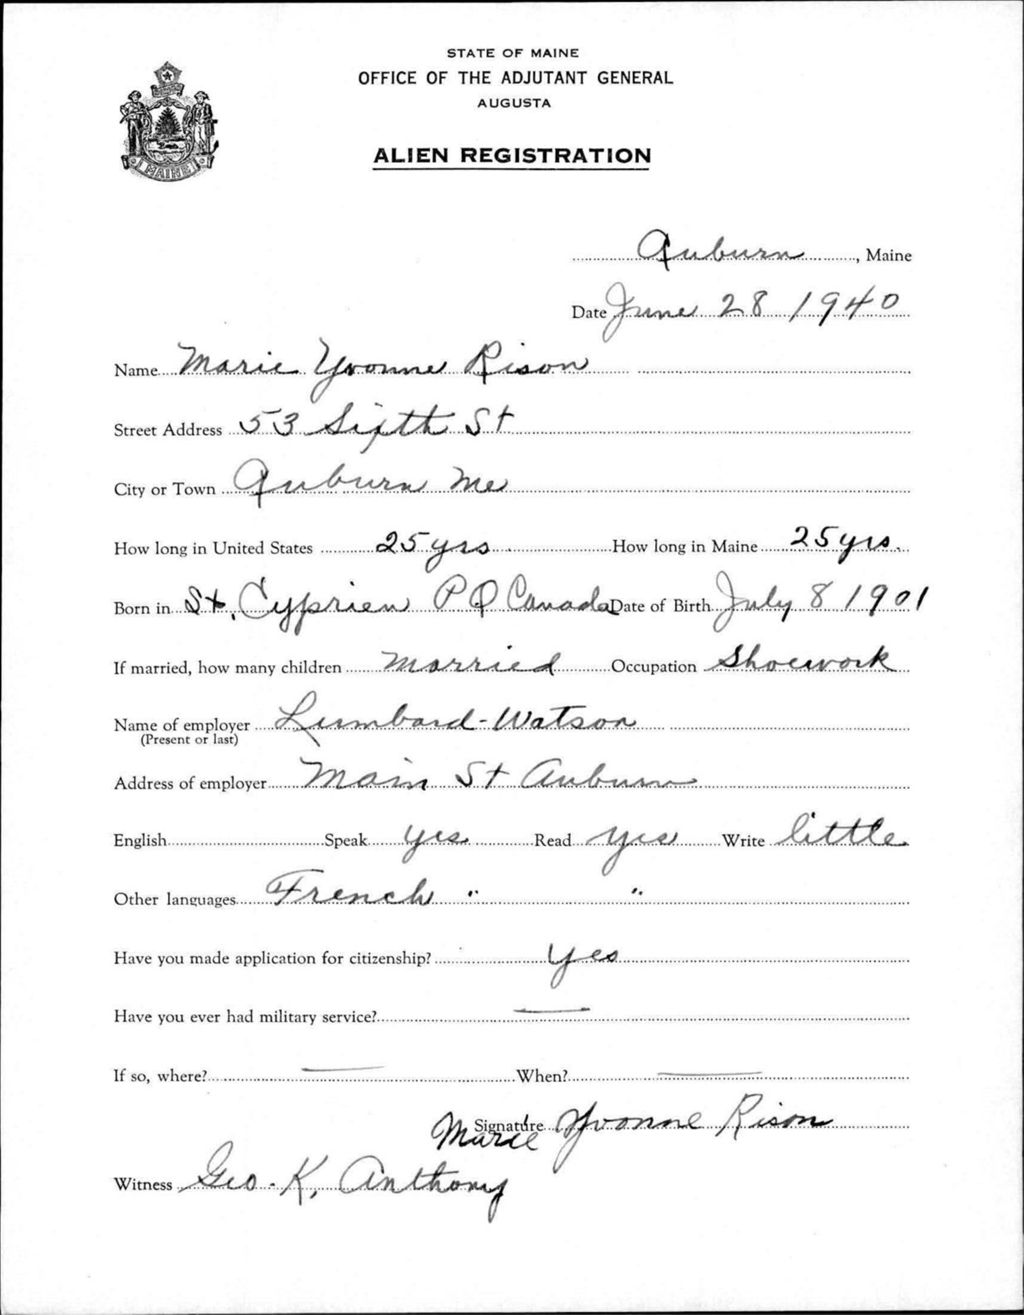 STATE OF MAINE
OFFICE OF THE ADJUTANT GENERAL
AUGUSTA
MAINE
ALIEN REGISTRATION
Auburn, Maine
Date June 28 1940
Name Marie Yvonne Rison
Street Address 53 Sixth St
City or Town Auburn Me
How long in United States 25 yrs How long in Maine 25 yrs.
Born in St. Cyprien P Q Canada Date of Birth July 8 1901
If married, how many children Married Occupation Shoework
Name of employer Lumbard-Watson
(Present or last)
Address of employer Main St Auburn
English Speak yes Read yes Write little
Other languages French " "
Have you made application for citizenship? Yes
Have you ever had military service? —
If so, where? — When? —
Signature Marie Yvonne Rison
Witness Geo. K. Anthony